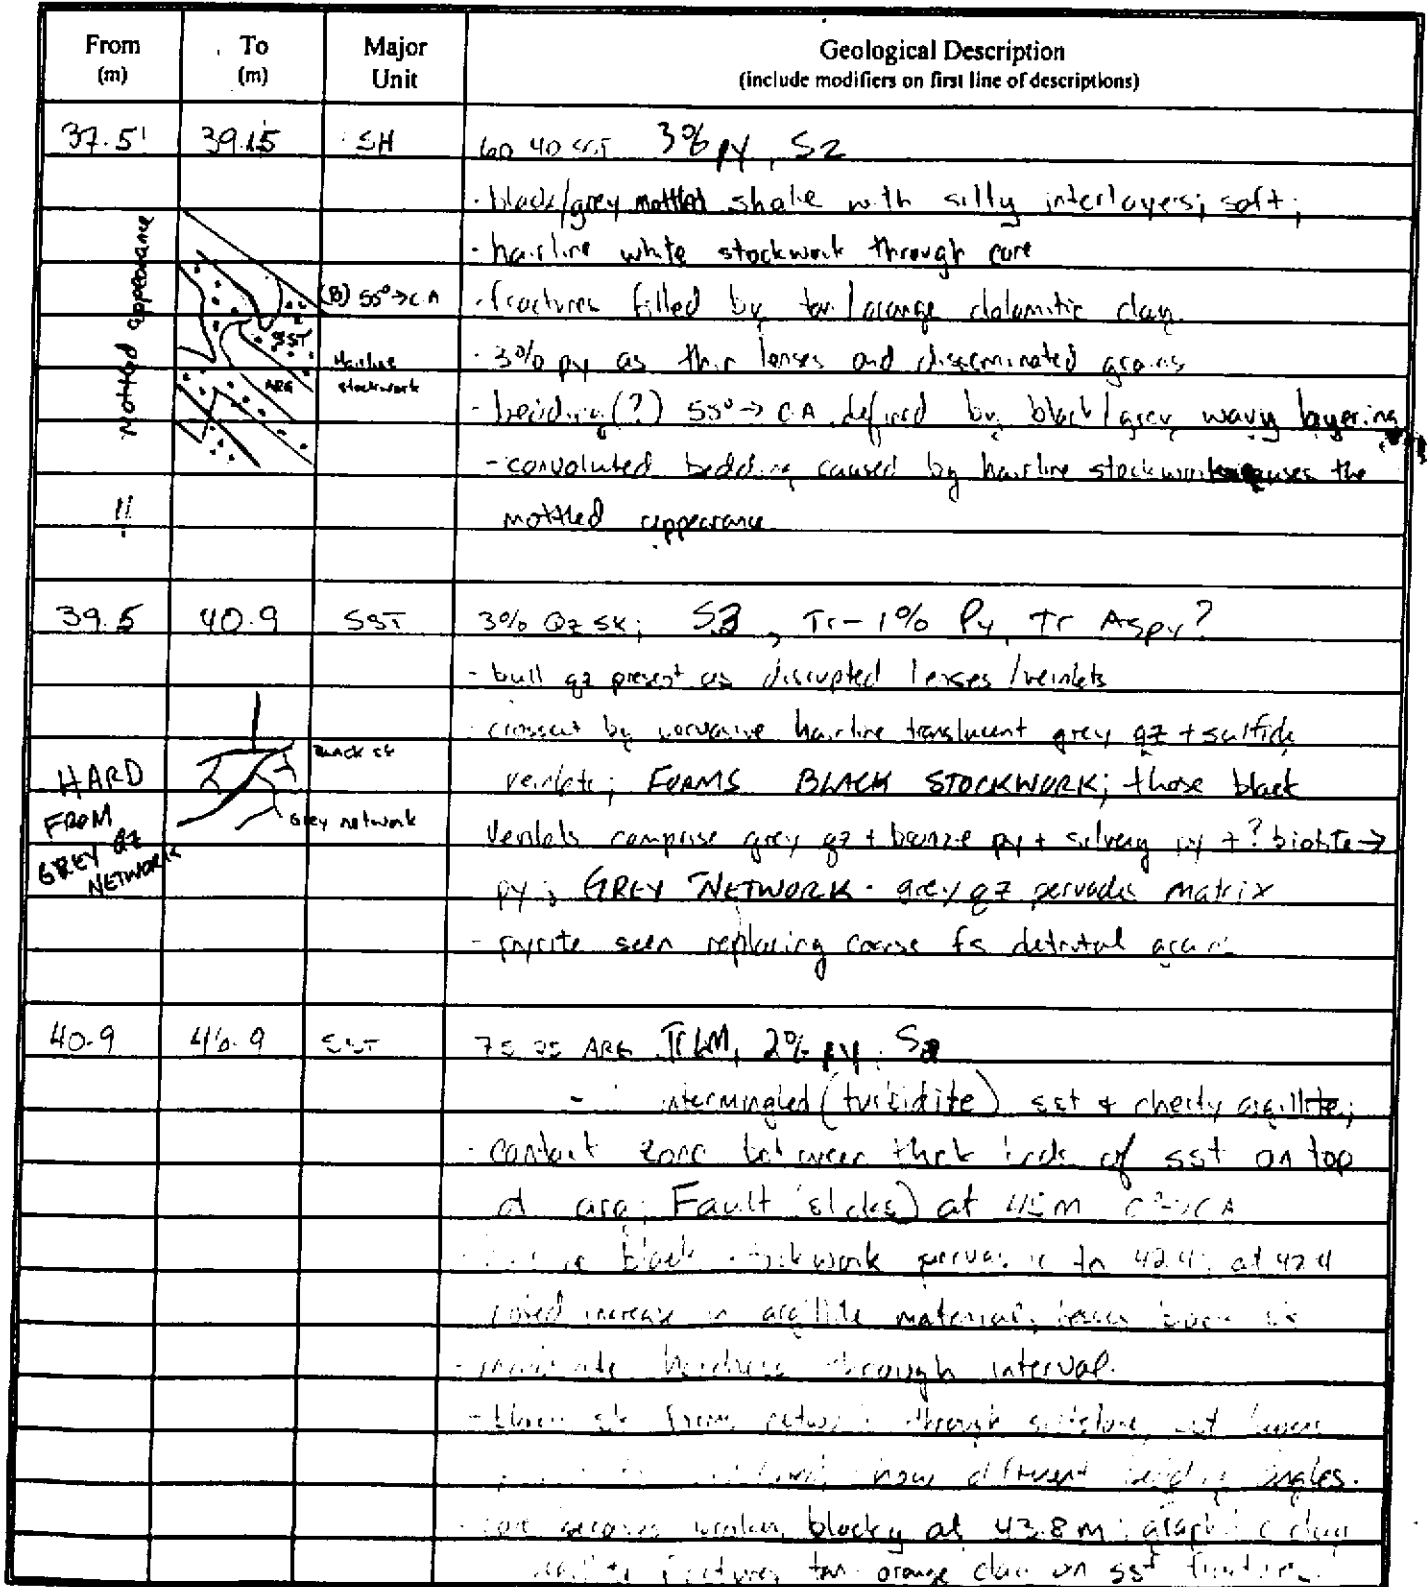 From To Major Geological Description
(m) (m) Unit (include modifiers on first line of descriptions)
37.5' 39.15 SH 60 40 SST 3% py, S2
- black/grey mottled shale with silty interlayers; soft;
- hairline white stockwork through core
Mottled appearance
(B) 55°→C.A
- fractures filled by tan/orange dolomitic clay.
SST
ARG
Hairline
stockwork
- 3% py as thin lenses and disseminated grains
- bedding(?) 55°→CA defined by black/grey wavy layering
- convoluted bedding caused by hairline stockwork causes the
mottled appearance
39.5 40.9 SST 3% Qz SK; S3, Tr-1% Py, Tr Aspy?
- bull qz present as disrupted lenses/veinlets
- crosscut by pervasive hairline translucent grey qz + sulfide
Black sk
veinlets; FORMS BLACK STOCKWORK; those black
Grey network
HARD
FROM
GREY QZ
NETWORK
veinlets comprise grey qz + bronze py + silvery py + ? biotite →
py; GREY NETWORK - grey qz pervades matrix
- pyrite seen replacing coarse fs detrital grain
40.9 SST 75 25 ARG Tr LM, 2% py, S2
- intermingled (turbidite) sst + cherty argillite;
- contact zone between thick beds of sst on top
of arg; Fault (slicks) at 45m →CA
black stockwork pervasive to 42.4; at 42.4
increase in argillite material,
- moderate hardness through interval.
- black sk forms network through siltstone, sst layers
show different bedding angles.
- core becomes broken, blocky at 43.8m; graphitic clay
fractures tan orange clay on sst fracture